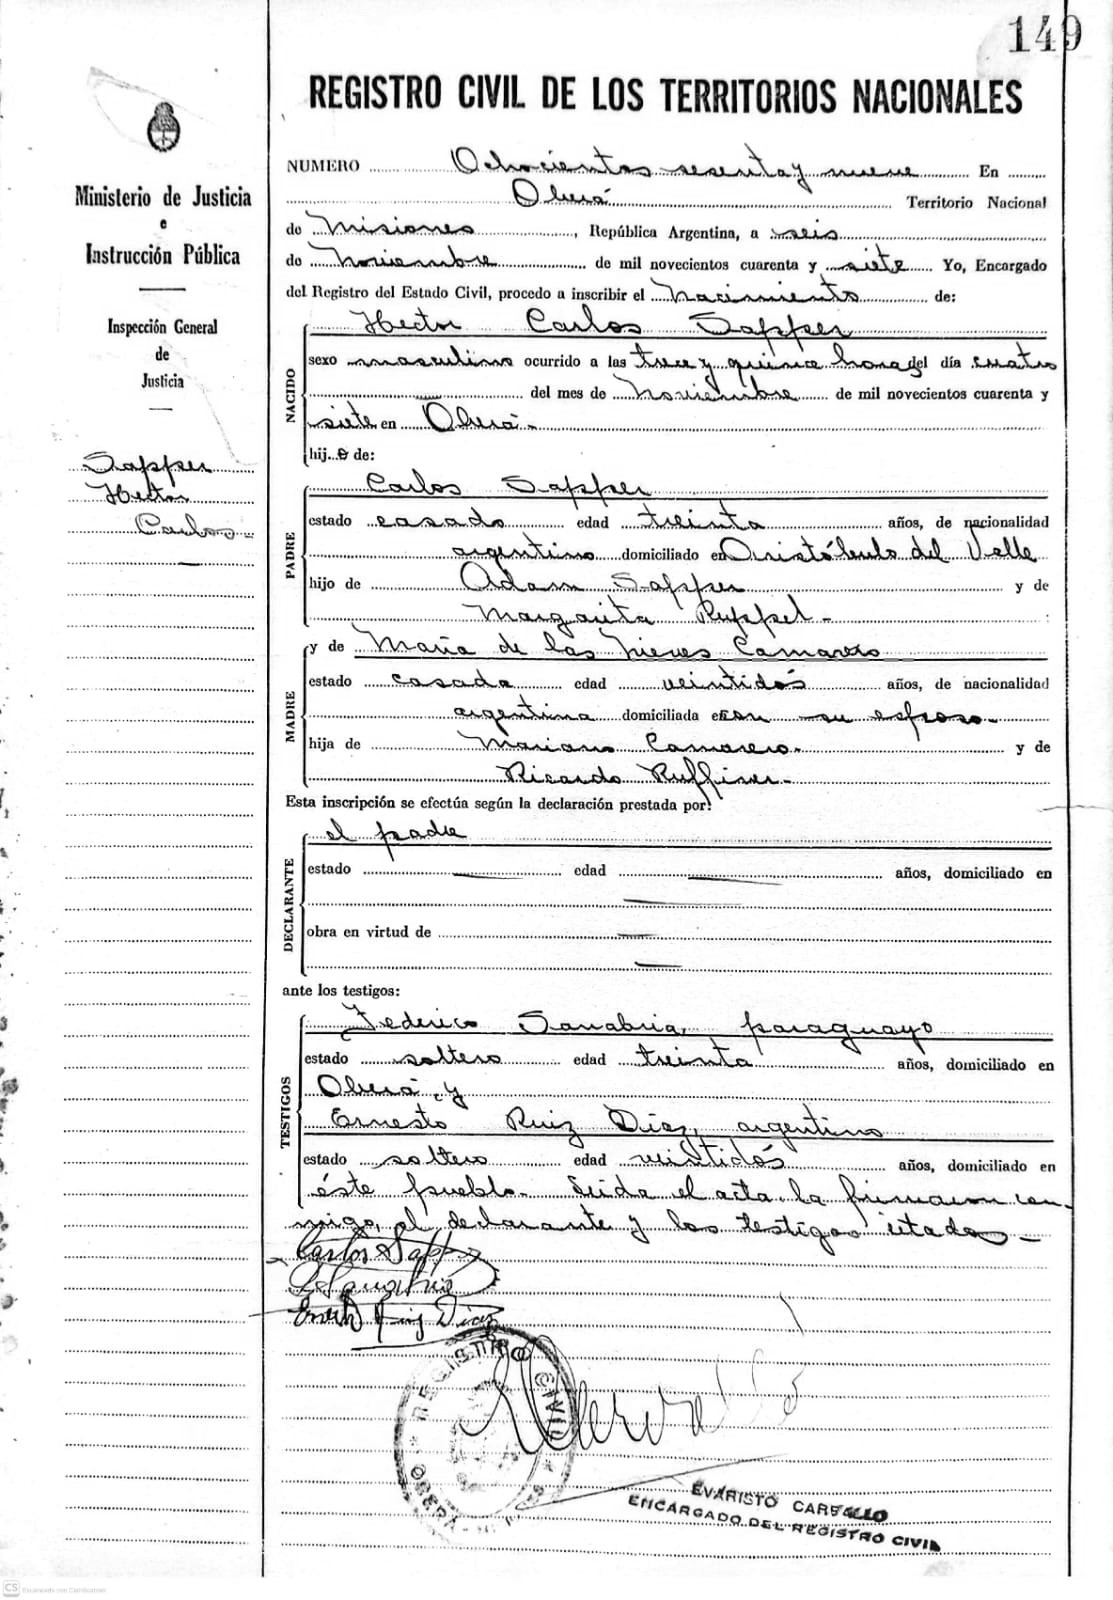 149
REGISTRO CIVIL DE LOS TERRITORIOS NACIONALES
Ministerio de Justicia
e
Instrucción Pública
Inspección General
de
Justicia
Sapper
Hector
Carlos
NUMERO Ochocientos sesenta y nueve En
Oberá Territorio Nacional
de Misiones, República Argentina, a seis
de Noviembre de mil novecientos cuarenta y siete Yo, Encargado
del Registro del Estado Civil, procedo a inscribir el Nacimiento de:
NACIDO
Hector Carlos Sapper
sexo masculino ocurrido a las trece y quince horas del día cuatro
del mes de Noviembre de mil novecientos cuarenta y
siete en Oberá-
hijo de:
PADRE
Carlos Sapper
estado casado edad treinta años, de nacionalidad
argentino domiciliado en Aristóbulo del Valle
hijo de Adam Sapper y de
Margarita Ruppel-
MADRE
y de María de las Nieves Camarero
estado casada edad veintidós años, de nacionalidad
argentina domiciliada con su esposo-
hija de Mariano Camarero- y de
Ricarda
Esta inscripción se efectúa según la declaración prestada por:
DECLARANTE
el padre
estado edad años, domiciliado en
obra en virtud de
ante los testigos:
TESTIGOS
Federico Sanabria, paraguayo
estado soltero edad treinta años, domiciliado en
Oberá, y
Ernesto Ruiz Diaz, argentino
estado soltero edad veintidós años, domiciliado en
éste pueblo- Leida el acta la firmaron con-
migo, el declarante y los testigos citados-
Carlos Sapper
Sanabria
Ernesto Ruiz Diaz
REGISTRO CIVIL
OBERA
EVARISTO CARVALLO
ENCARGADO DEL REGISTRO CIVIL
CS Escaneado con CamScanner